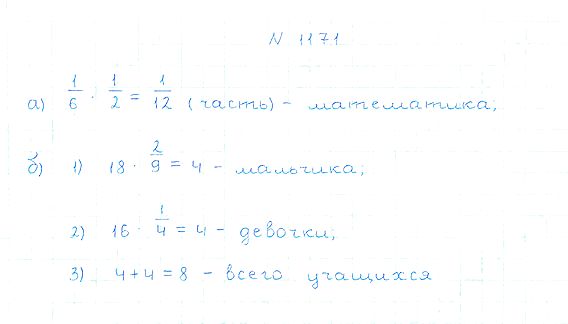 N 1171
а) 1/6 · 1/2 = 1/12 (часть) - математика;
б) 1) 18 · 2/9 = 4 - мальчика;
2) 16 · 1/4 = 4 - девочки;
3) 4 + 4 = 8 - всего учащихся